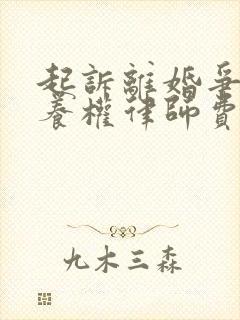 起訴離婚爭
養權律師費
九木三森